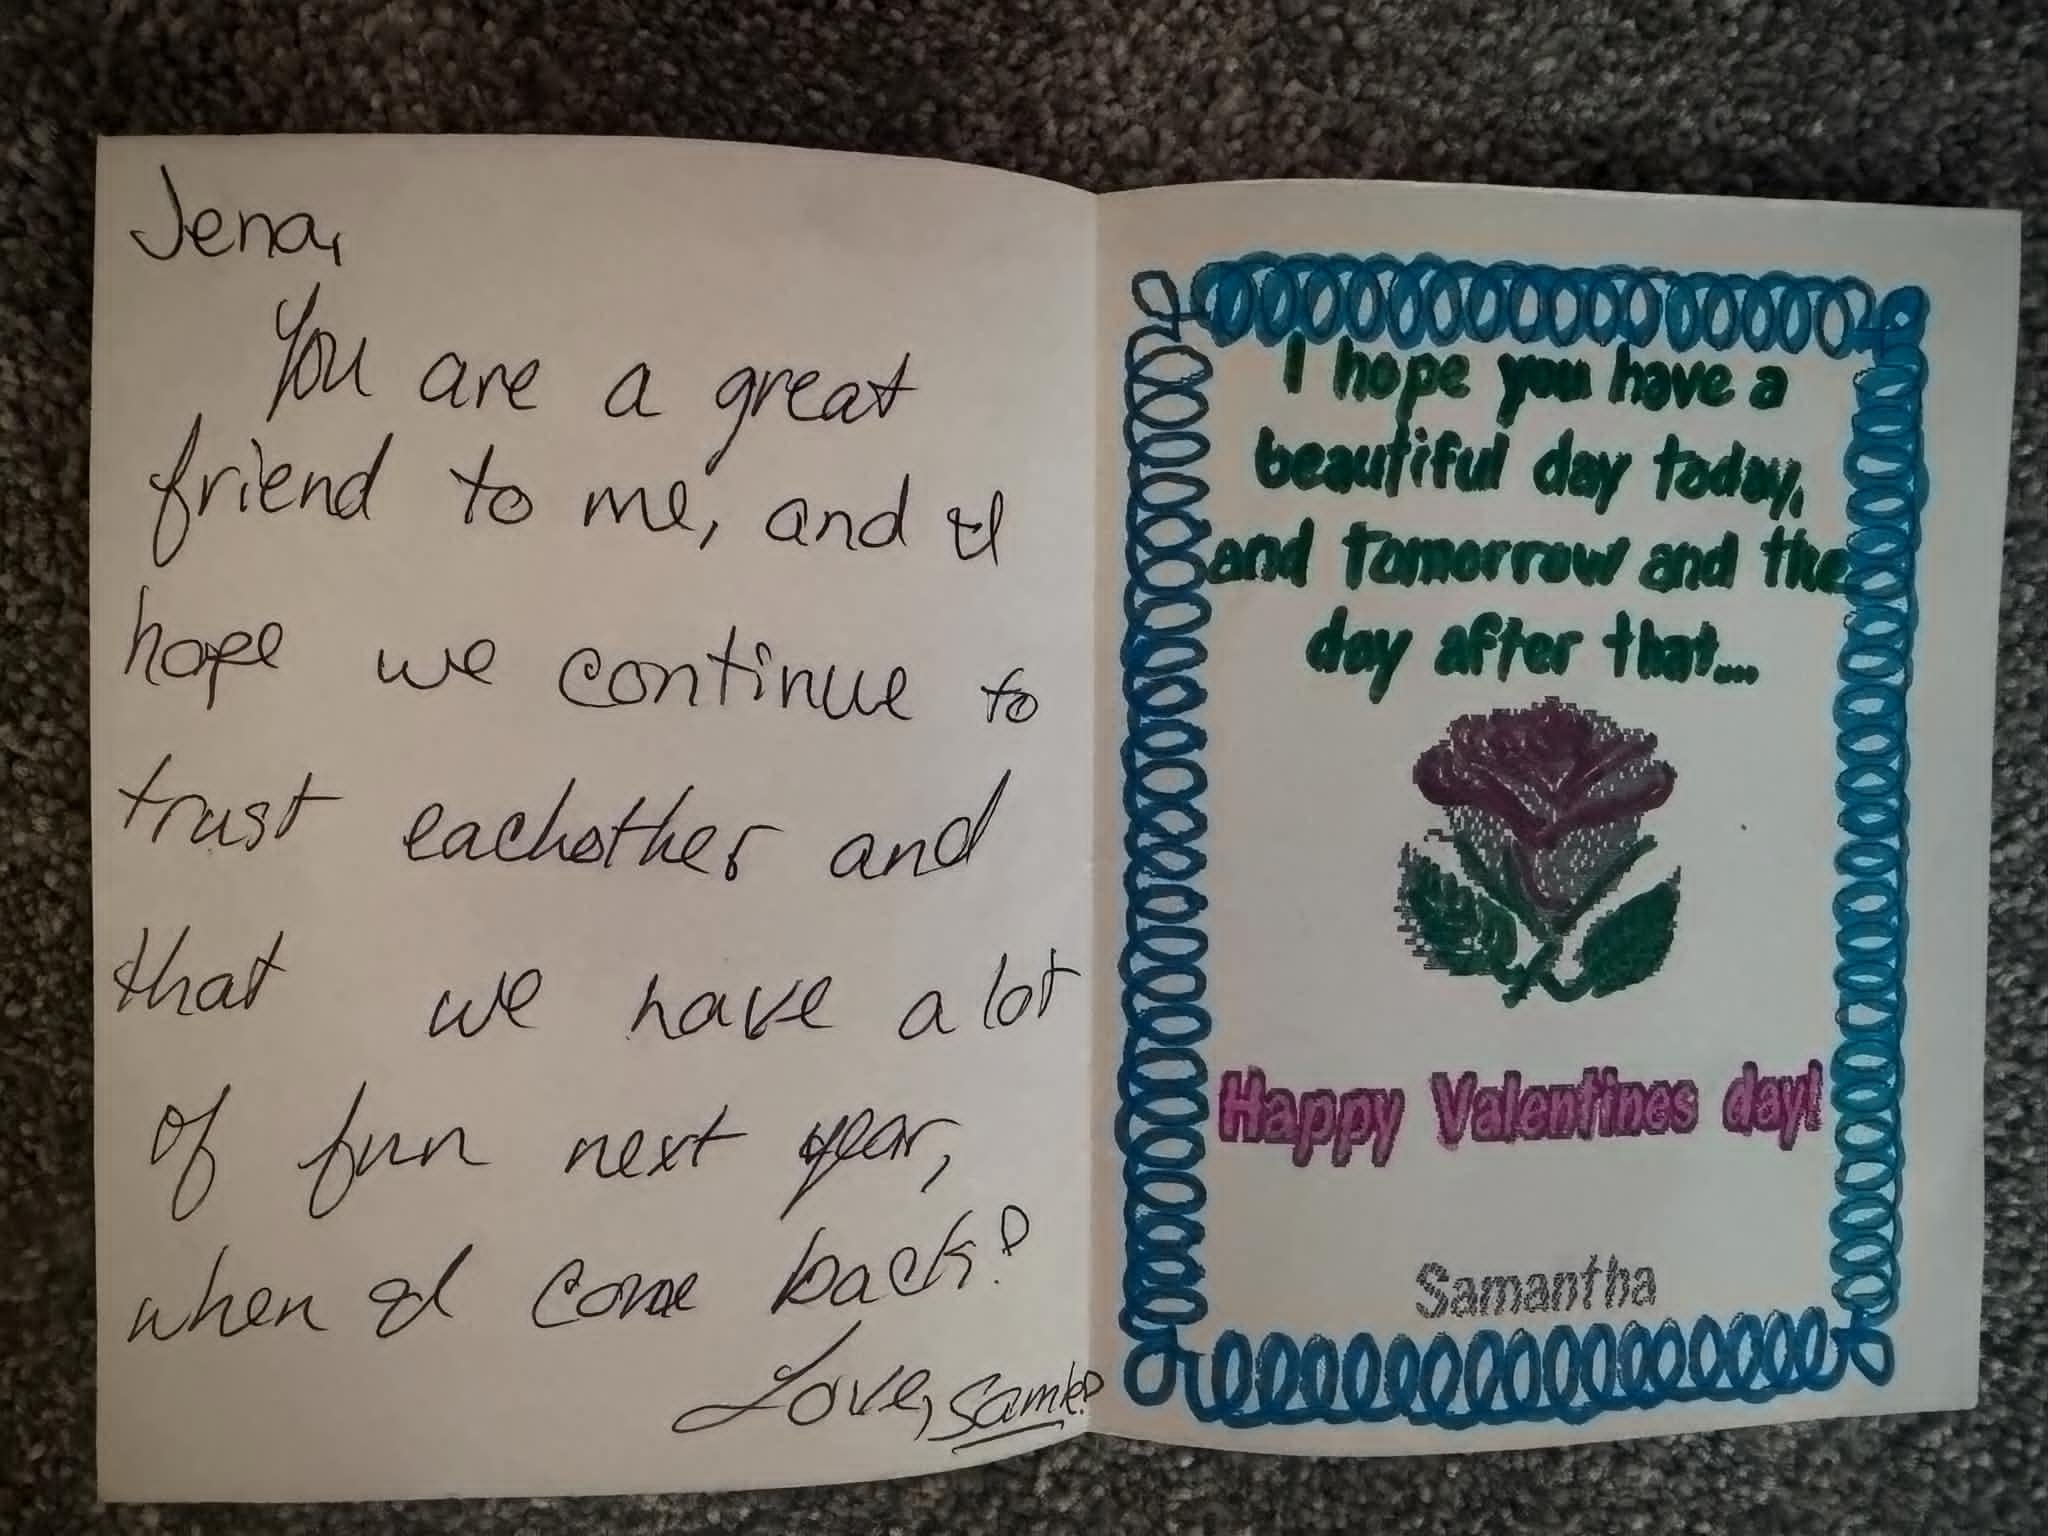 Jena,
You are a great
friend to me, and I
hope we continue to
trust eachother and
that we have a lot
of fun next year,
when I come back!
Love, Sam K!
I hope you have a
beautiful day today,
and tomorrow and the
day after that....
Happy Valentines day!
Samantha